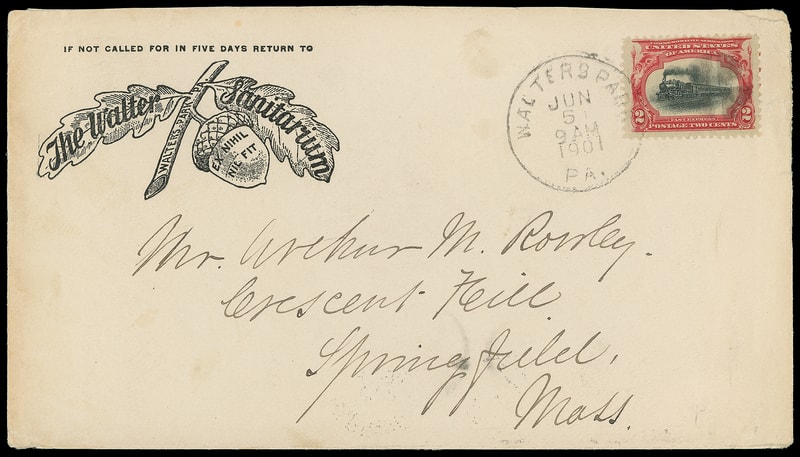 IF NOT CALLED FOR IN FIVE DAYS RETURN TO
The Walter Sanitarium
WALTERS PARK PA
EX NIHIL
NIL FIT
WALTERS PARK
JUN
5
9 AM
1901
PA.
UNITED STATES
OF AMERICA
FAST EXPRESS
2 POSTAGE TWO CENTS 2
Mr. Arthur M. Rowley.
Crescent Hill
Springfield,
Mass.